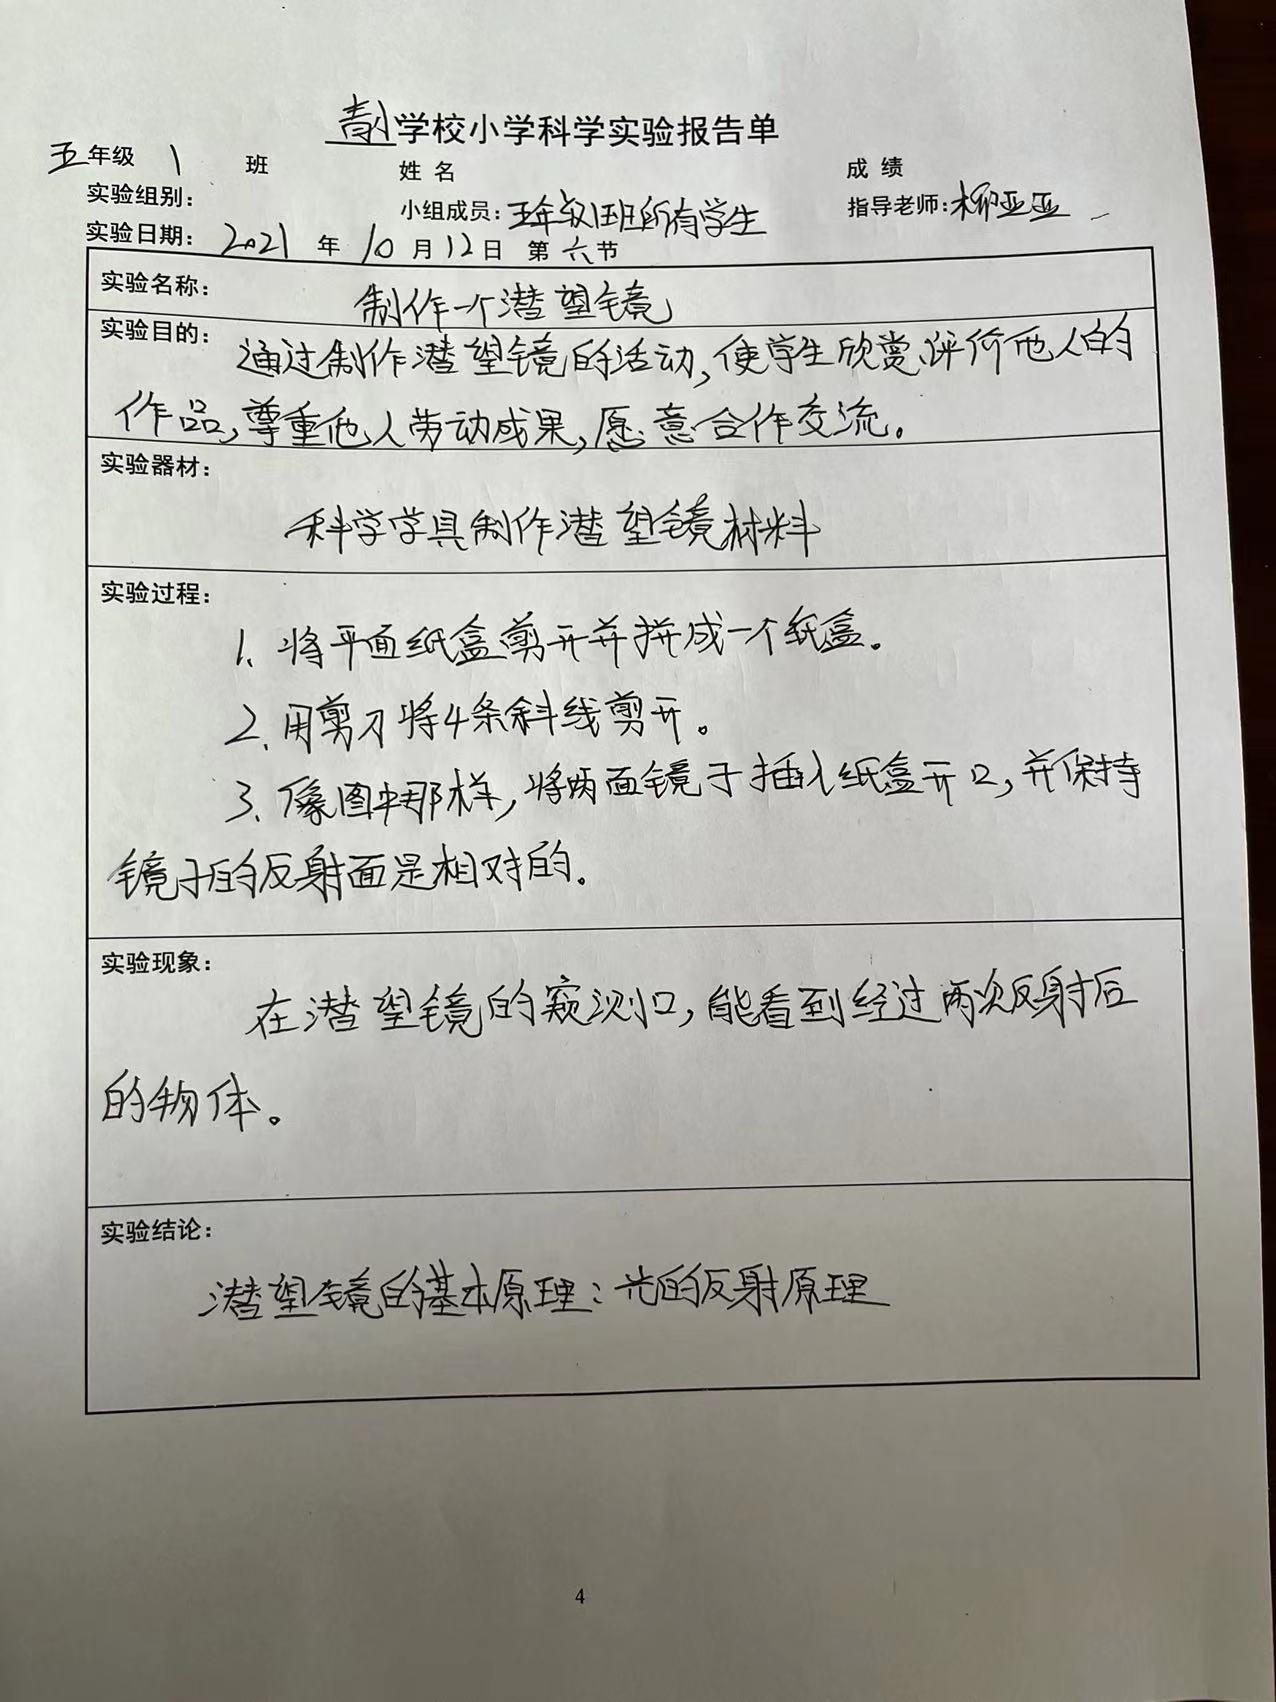 青小学校小学科学实验报告单
五年级 1 班 姓 名 成 绩
实验组别: 小组成员:五年级1班所有学生 指导老师:柳亚亚
实验日期: 2021 年 10 月 12 日 第 六 节
实验名称: 制作一个潜望镜
实验目的: 通过制作潜望镜的活动,使学生欣赏、评价他人的
作品,尊重他人劳动成果,愿意合作交流。
实验器材:
科学学具制作潜望镜材料
实验过程:
1、将平面纸盒剪开并拼成一个纸盒。
2、用剪刀将4条斜线剪开。
3、像图中那样,将两面镜子插入纸盒开口,并保持
镜子的反射面是相对的。
实验现象:
在潜望镜的窥测口,能看到经过两次反射后
的物体。
实验结论:
潜望镜的基本原理:光的反射原理
4